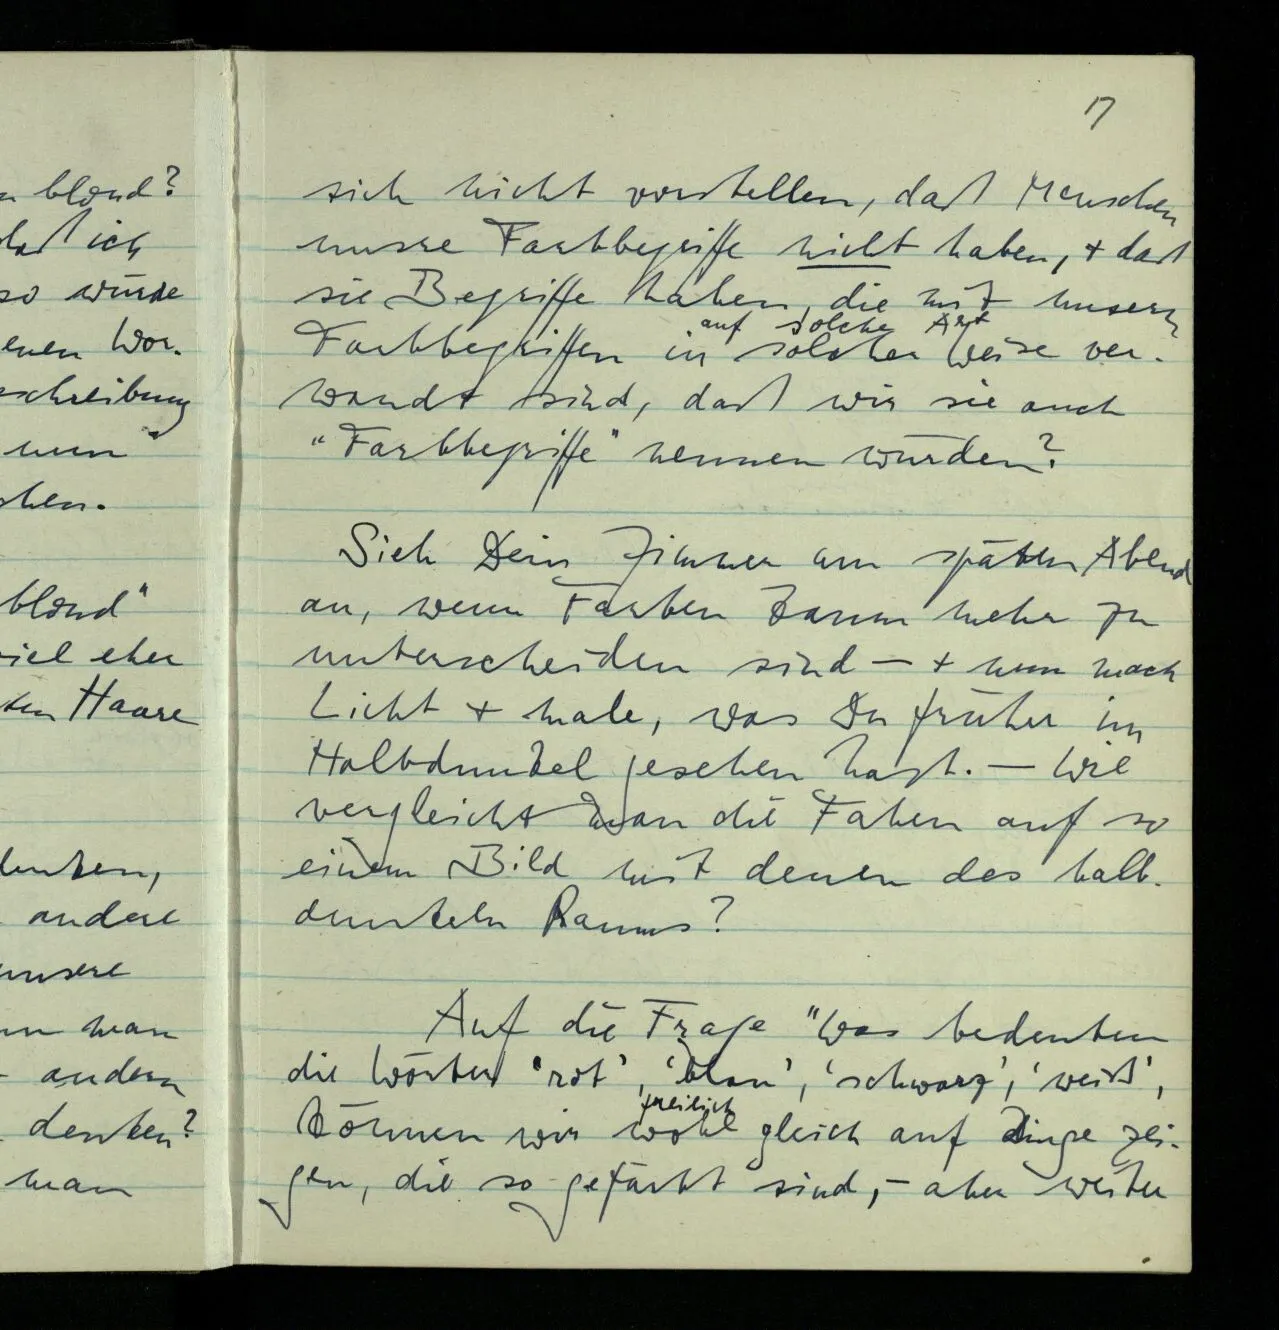 n blond?
daß ich
so würde
enen Wor-
schreibung
nun
chen.
blond"
viel eher
ten Haare
denken,
andere
unsere
nn man
andern
denken?
man
17
sich nicht vorstellen, daß Menschen
unsre Farbbegriffe nicht haben, + daß
sie Begriffe haben, die mit unsern
auf solche Art
Farbbegriffen in solcher Weise ver-
wandt sind, daß wir sie auch
"Farbbegriffe" nennen würden?
Sieh Dein Zimmer am späten Abend
an, wenn Farben kaum mehr zu
unterscheiden sind — + nun mach
Licht + male, was Du früher im
Halbdunkel gesehen hast. — Wie
vergleicht man die Faben auf so
einem Bild mit denen des halb-
dunkeln Raums?
Auf die Frage "Was bedeuten
die Wörter 'rot', 'blau', 'schwarz', 'weiß',
freilich
können wir wohl gleich auf Dinge zei-
gen, die so gefärbt sind, – aber weiter